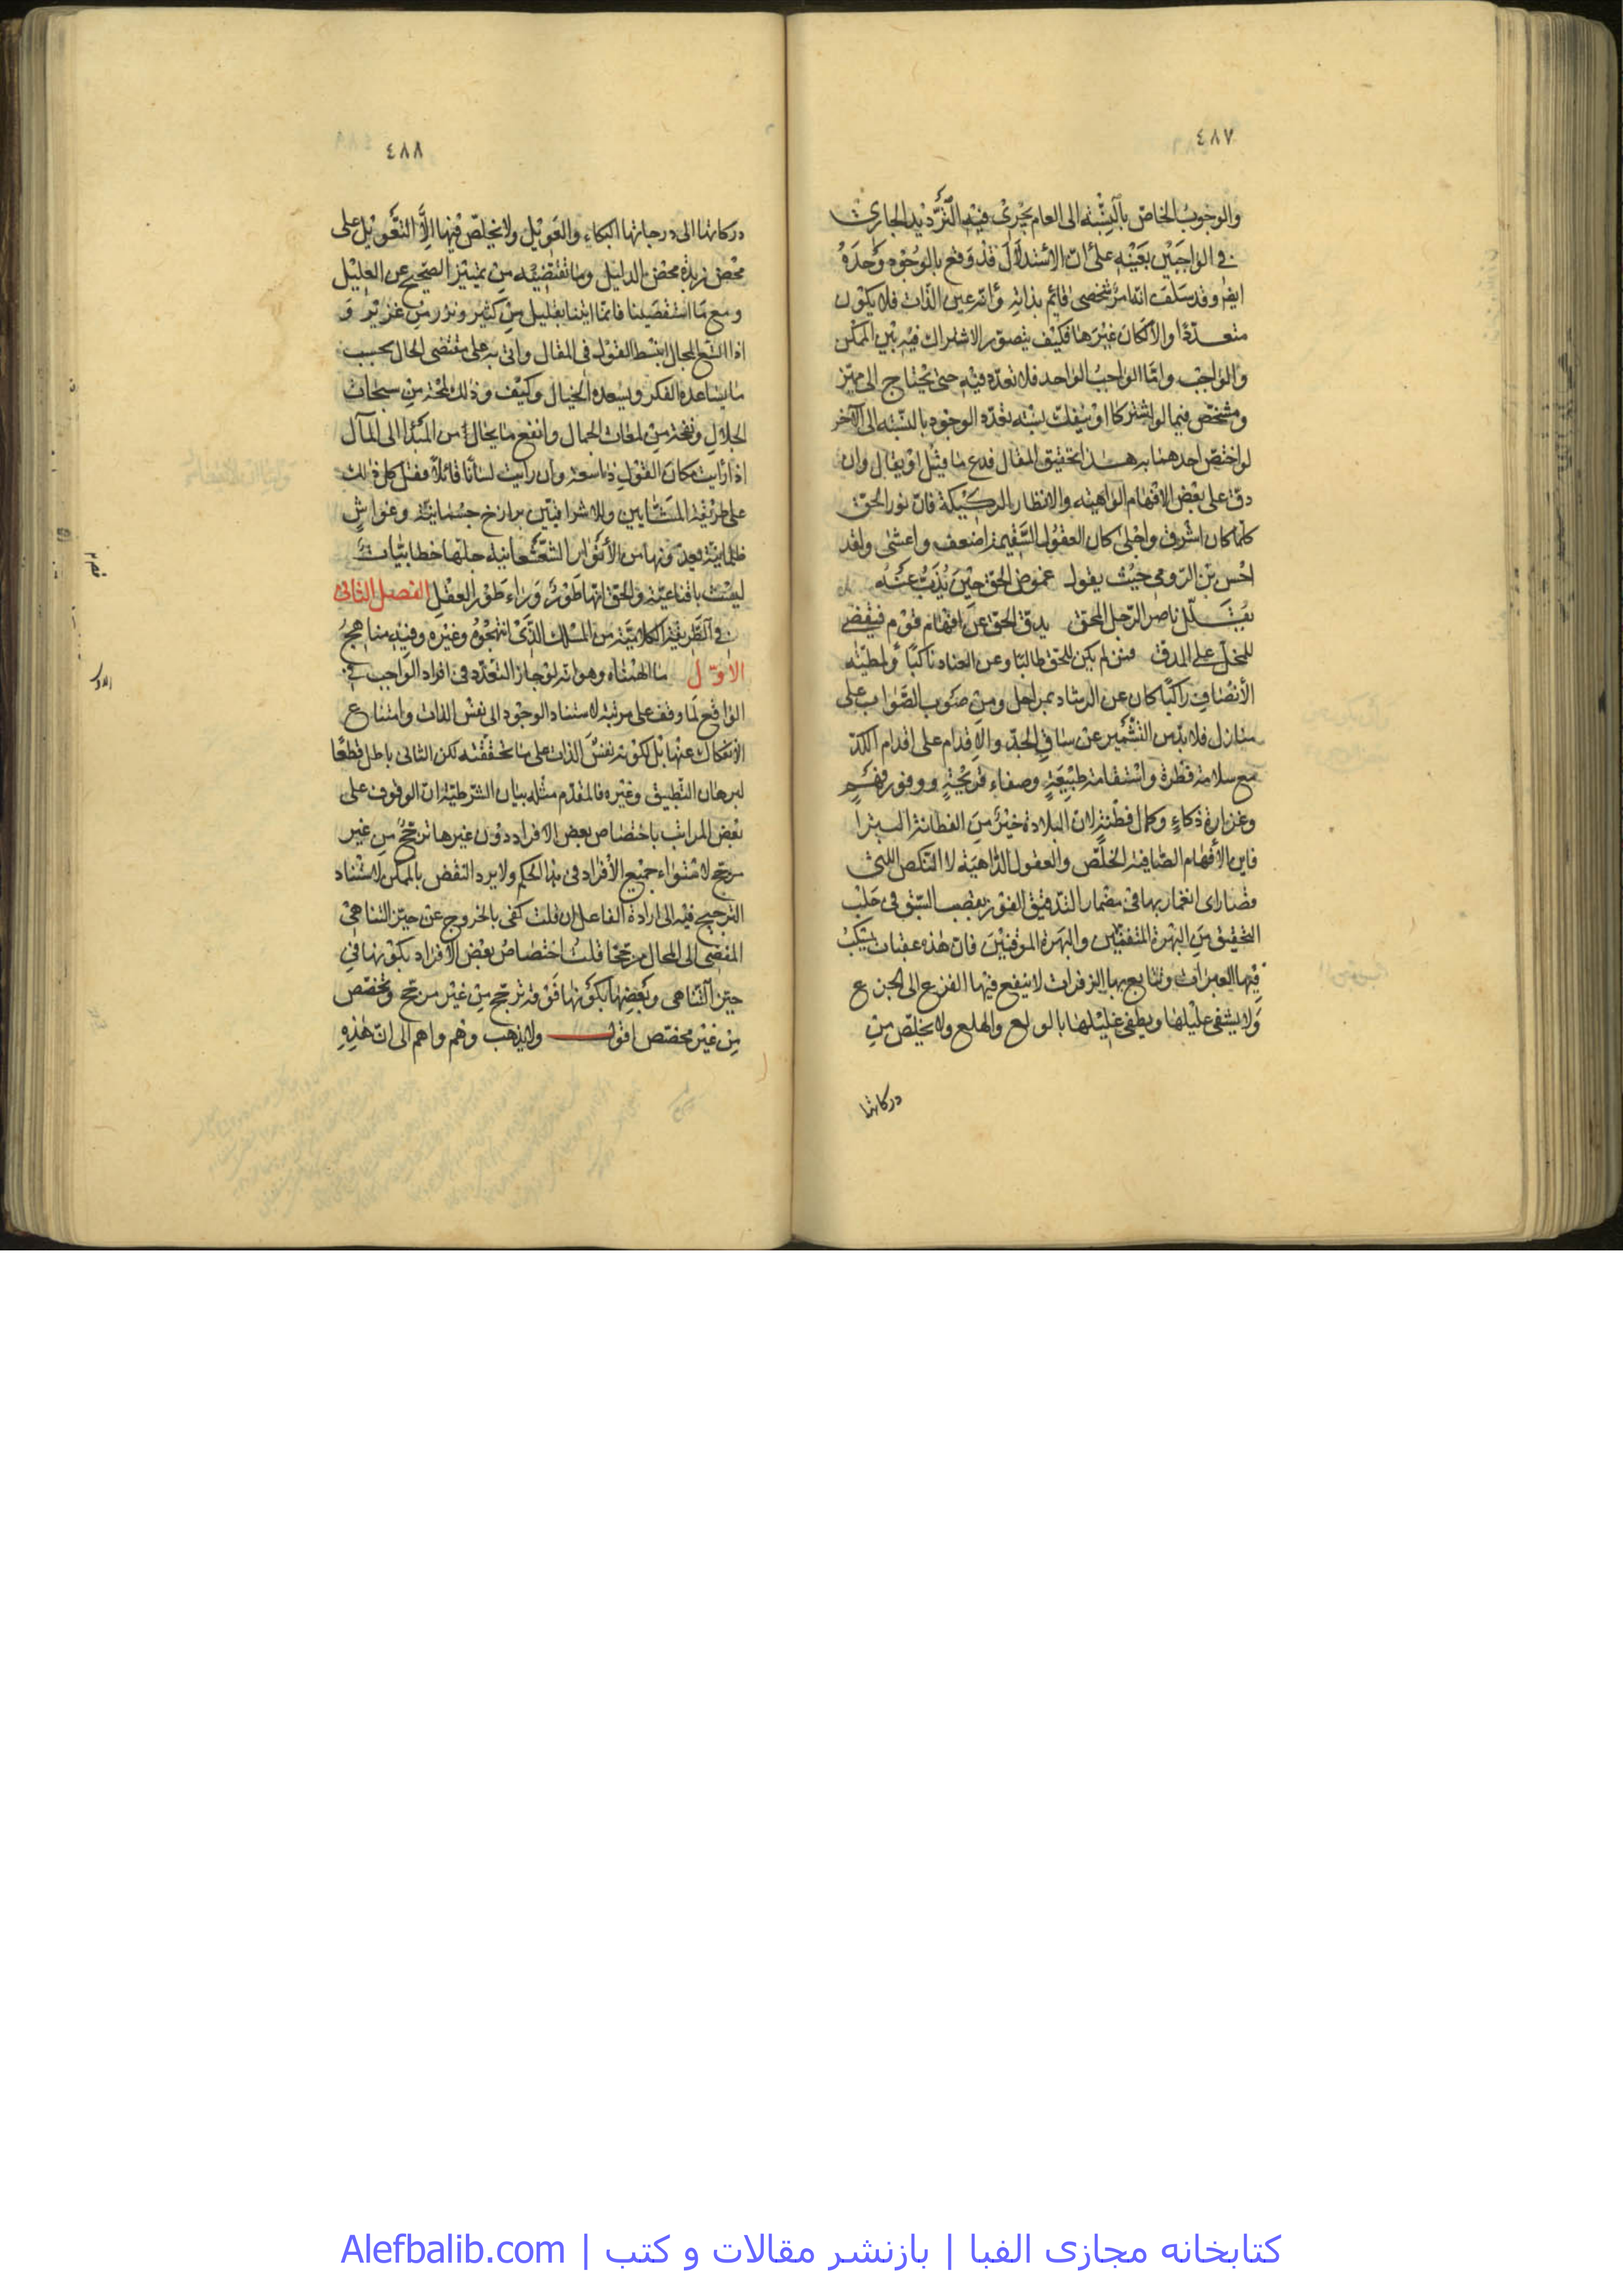 ٤٨٧
والوجوب الخاص بالنسبة الى العام يجرى فيه الترديد الجارى
فى الواجبين بعينه على ان الاستدلال قد وقع بالوجوه وحده
ايضا وقد سلف انه امر شخصى قائم بذاته وانه عين الذات فلا يكون
متعددا والا لكان غيرها فكيف يتصور الاشتراك فيه بين الممكن
والواجب واما الواجب الواحد فلا تعدد فيه حتى يحتاج الى مميز
ومشخص فيما لو اشتركا نسبته تعدد الوجود بالنسبة الى الآخر
لو اختص احدهما به هذا تحقيق المقال فدع ما قيل او يقال وان
دق على بعض الافهام الواهية والانظار الركيكة فان نور الحق
كلما كان اشرق واجلى كان العقول السقيمة اضعف واعشى ولقد
احسن ابن الرومى حيث يقول غموض الحق حين يذب عنه
يقلل ناصر الرجل المحق يدق الحق عن افهام قوم فيقضى
للمخل على المدق فمن لم يكن للحق طالبا وعن العناد ناكبا ولمطية
الانصاف راكبا كان عن الرشاد بمراحل ومن صوب الصواب على
منازل فلا بد من التشمير عن ساق الجد والاقدام على اقدام الكد
مع سلامة فطرة واستقامة طبيعة وصفاء قريحة ووفور فهم
وغزارة ذكاء وكمال فطنة لان البلادة خير من الفطانة البترا
فاين الافهام الصافية الخلص والعقول الداهية لا النكص اللتى
قصارى انغمار بها فى مضمار التدقيق الفوز بقصب السبق فى حلب
التحقيق من البهرة المتقنين والبهرة الموقنين فان هذه عقبات يسكب
فيها العبرات وتتابع بها الزفرات لا ينفع فيها الفزع الى الجزع
ولا يشفى عليلها ويطفى غليلها بالولع والهلع ولا يخلص من
دركاتها
٤٨٨
دركاتها الى درجاتها البكاء والعويل ولا يخلص فيها الا التعويل على
محض زبدة مخض الدليل وما تقتضيه من تمييز الصحيح عن العليل
ومع ما استقصينا فانما اتينا بقليل من كثير ونزر من غزير و
اذا اتسع المجال انبسط القول فى المقال واتى به على مقتضى الحال بحسب
ما يساعده الفكر ويسعده الخيال وكيف وذلك لمحة من سبحات
الجلال ونفحة من لمعات الجمال وانفع ما يخال من المبدأ الى المآل
اذا رايت مكان القول ذا سعة وان رايت لسانا قائلا فقل كل ذلك
على طريقة المشايين وللاشراقيين برازخ جسمانية وغواش
ظلمانية يعدونها من الانوار الشعشعانية جلها خطابيات
ليست باقناعية والحق انها طور وراء طور العقل الفصل الثانى
فى الطريقة الكلامية من المسلك الذى انتهجوه وغيره وفيه مناهج
الاول ما الهمناه وهو انه لو جاز التعدد فى افراد الواجب فى
الواقع لما وقف على مرتبة لاستناد الوجود الى نفس الذات وامتناع
الانفكاك عنها بل لكونه نفس الذات على ما تحققته لكن الثانى باطل قطعا
لبرهان التطبيق وغيره فالمقدم مثله بيان الشرطية ان الوقوف على
بعض المراتب باختصاص بعض الافراد دون غيرها ترجح من غير
مرجح لاستواء جميع الافراد فى هذا الحكم ولا يرد النقض بالممكن لاستناد
الترجيح فيه الى ارادة الفاعل ان قلت كفى بالخروج عن حيز التناهى
المفضى الى المحال مرجحا قلت اختصاص بعض الافراد بكونها فى
حيز التناهى وبعضها بكونها فوقه ترجح من غير مرجح وتخصص
من غير مخصص اقول ولا يذهب وهم واهم الى ان هذه
كتابخانه مجازی الفبا | بازنشر مقالات و کتب | Alefbalib.com